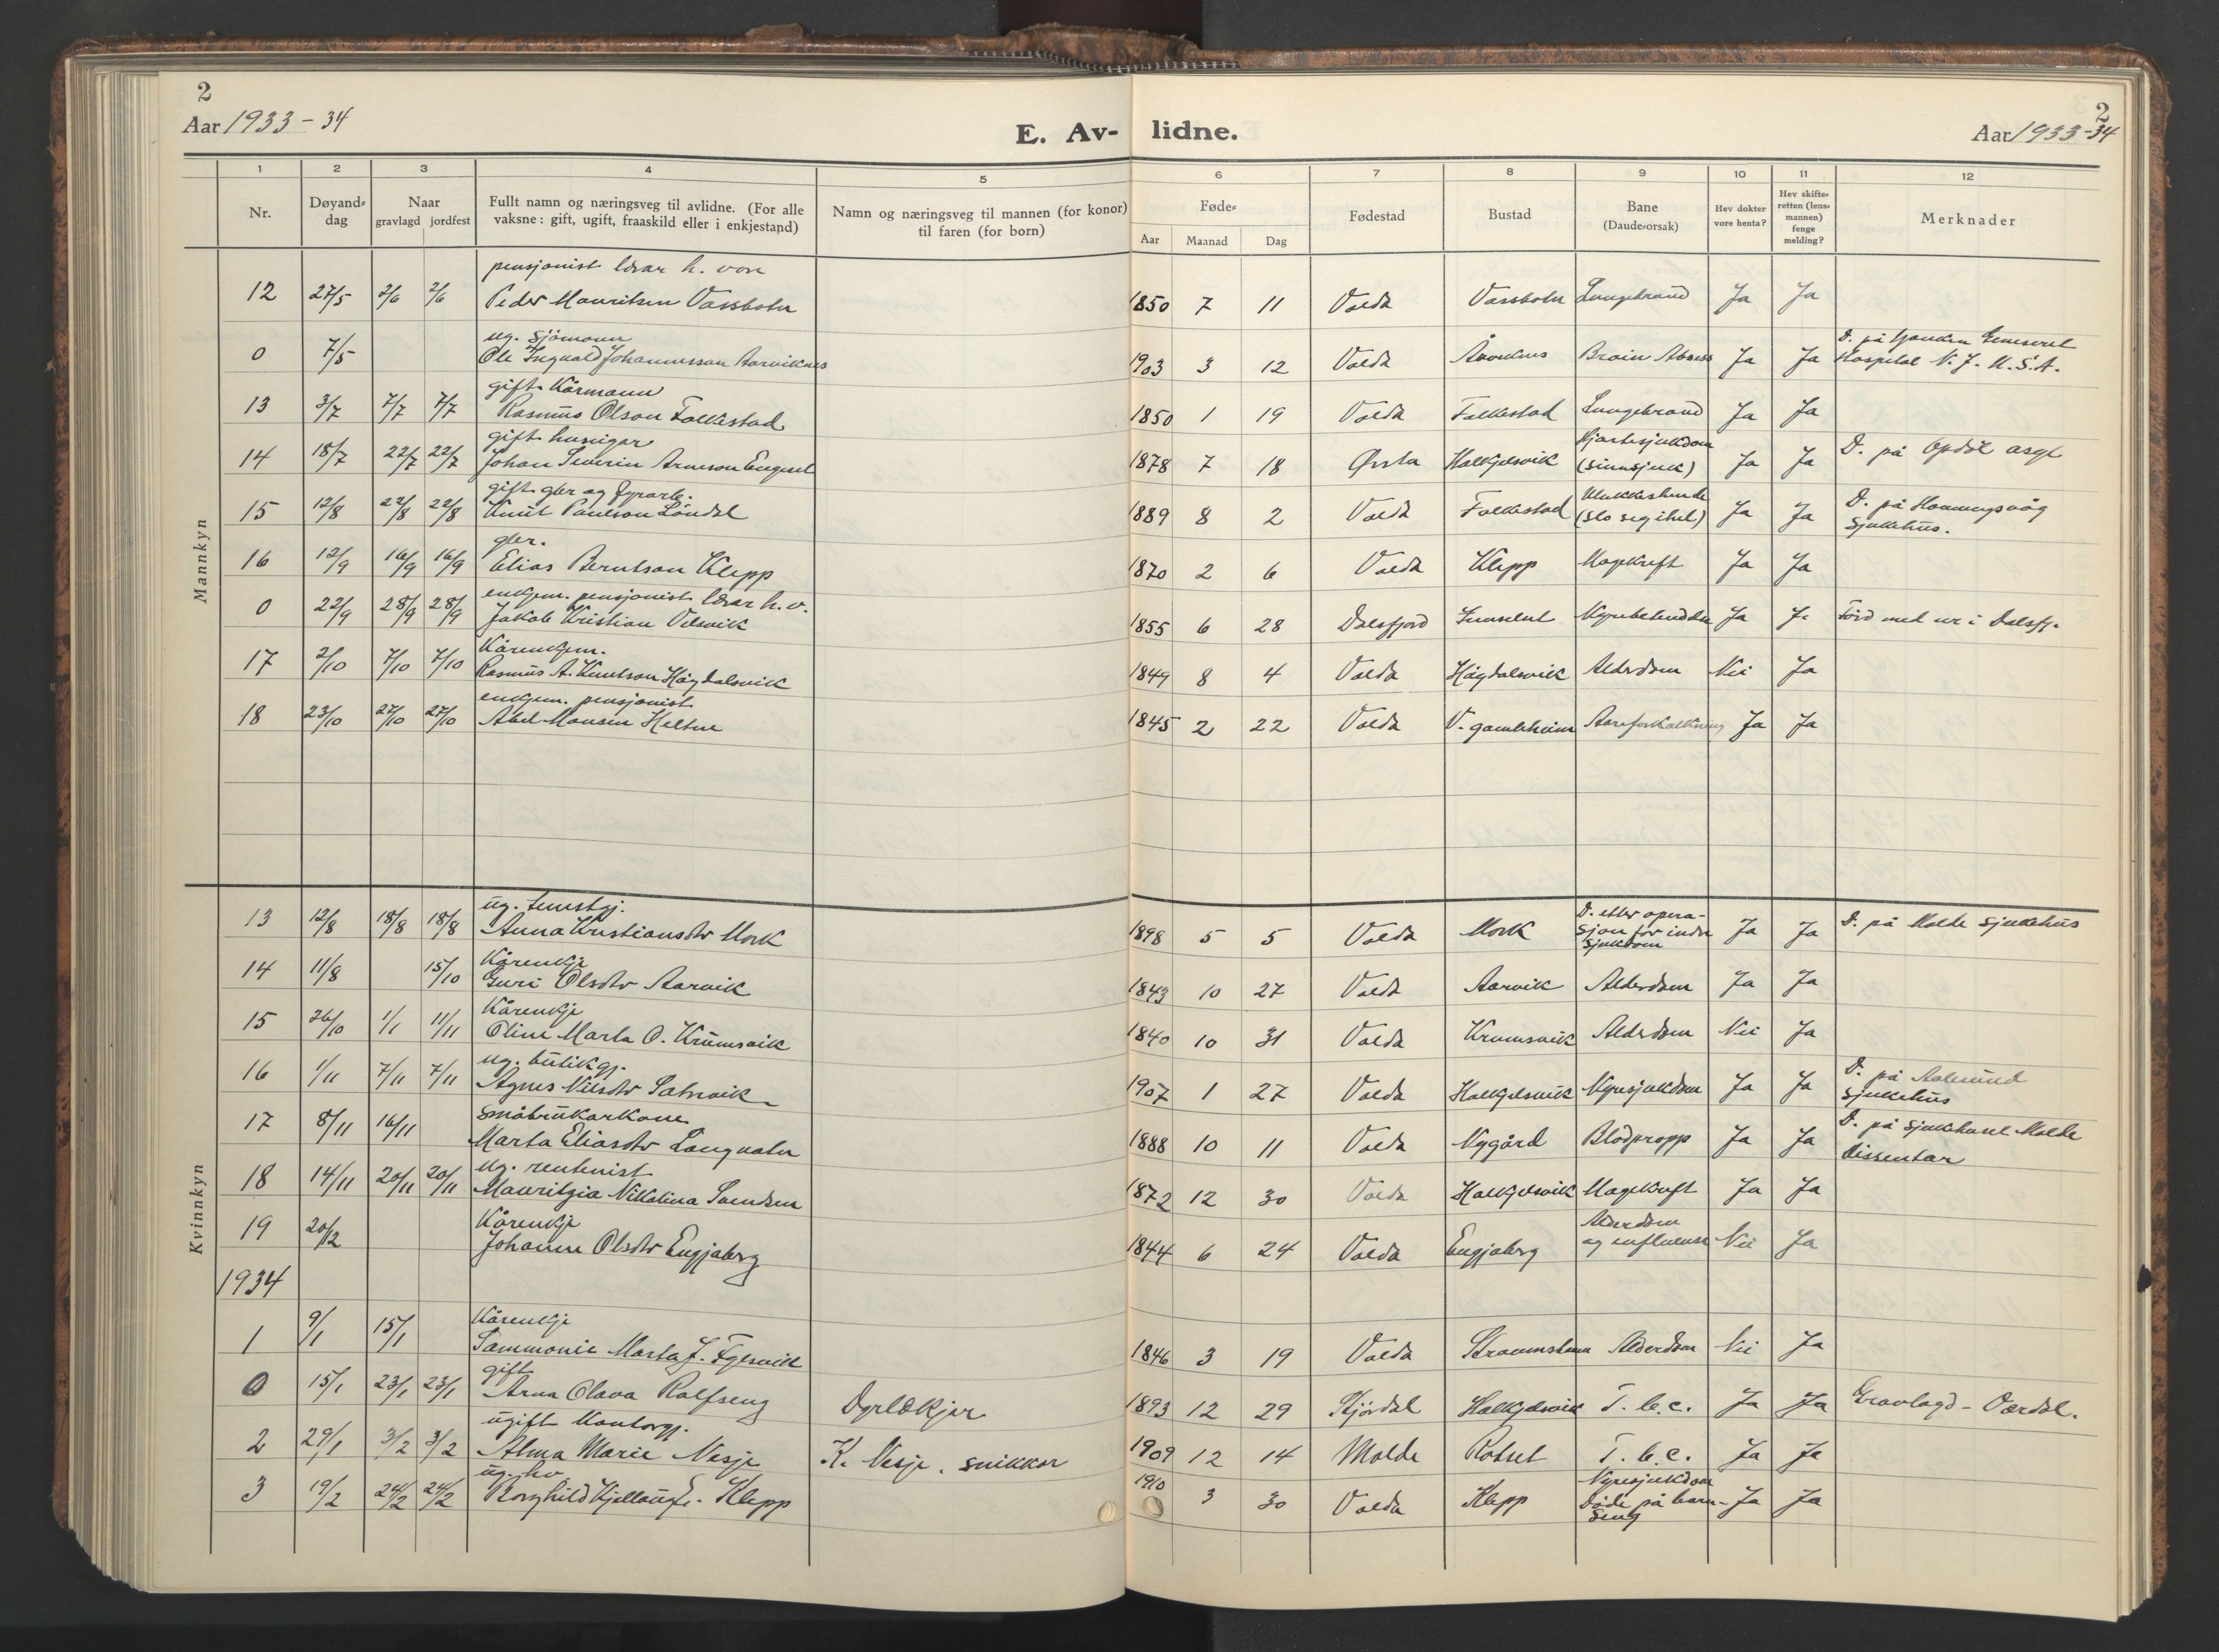 2
Aar 1933-34
E. Av-
lidne.
2
Aar 1933-34
1 2 3 4 5 6 7 8 9 10 11 12
Nr.
Døyand-dag
Naar
gravlagd jordfest
Fullt namn og næringsveg til avlidne. (For alle
vaksne: gift, ugift, fraaskild eller i enkjestand)
Namn og næringsveg til mannen (for konor)
til faren (for born)
Føde-
Aar Maanad Dag
Fødestad
Bustad
Bane
(Daude-orsak)
Hev dokter
vore henta?
Hev skifte-
retten (lens-
mannen)
fenge
melding?
Merknader
Mannkyn
pensjonist lærar h. von
12 27/5 2/6 2/6 Peder Mauritsen Vassbotn 1850 7 11 Volda Vassbotn Lungebrand Ja Ja
ug. Sjömann
0 7/5 Ole Ingvald Johannesson Aarviknes 1903 3 12 Volda Brain Absess Ja Ja
D. på General
Hospital N. J. U.S.A.
gift. Kårmann
13 3/7 7/7 7/7 Rasmus Olson Folkestad 1850 1 19 Volda Folkestad Lungebrand Ja Ja
gift huseigar
14 18/7 22/7 22/7 Johan Severin Arneson Engeset 1878 7 18 Ørsta Halkjelsvik Hjartesjukdom
(sinnsjuk) Ja Ja D. på Opdøl asyl
gift gbr og fyrarb.
15 12/8 22/8 22/8 Knut Paulson Löndal 1889 8 2 Volda Folkestad Ulukkeshende
(slo seg ihel) Ja Ja D. på Honningsvåg
Sjukehus.
gbr.
16 12/9 16/9 16/9 Elias Berntson Klepp 1870 2 6 Volda Klepp Magekreft Ja Ja
enkjem. pensjonist lærar h. v.
0 22/9 28/9 28/9 Jakob Kristian Vilsvik 1855 6 28 Dalsfjord Nyrebetendelse Ja Ja Förd med nr i Dalsfj.
Kårenkjem.
17 2/10 7/10 7/10 Rasmus A. Knutson Högdalsvik 1849 8 4 Volda Högdalsvik Alderdom Nei Ja
enkjem. pensjonist
18 23/10 27/10 27/10 Abel Monsen Heltne 1845 2 22 Volda V. gamleheim Aareforkalkning Ja Ja
Kvinnkyn
ug. tenestgj.
13 12/8 18/8 18/8 Anna Kristiansdtr Mork 1898 5 5 Volda Mork D. etter opera-
sjon for indre
sjukdom Ja Ja D. på Molde Sjukehus
Kårenkje
14 11/8 15/10 Guri Olsdtr Aarvik 1843 10 27 Volda Aarvik Alderdom Ja Ja
Kårenkje
15 26/10 1/1 11/11 Oline Marta O. Krumsvik 1840 10 31 Volda Krumsvik Alderdom Nei Ja
ug. butikkgj.
16 1/11 7/11 7/11 Agnes Nilsdtr Sætrevik 1907 1 27 Volda Halkjelsvik Nyresjukdom Ja Ja D. på Aalesund
Sjukehus
Småbrukarkone
17 8/11 16/11 Marta Eliasdtr Langvatn 1888 10 11 Volda Nygård Blodpropp Ja Ja D. på Sjukehuset Molde
Dissentar
ug. rentenist
18 14/11 20/11 20/11 Mauritzia Nikolina Svendsen 1872 12 30 Volda Halkjelsvik Magekreft Ja Ja
Kårenkje
19 20/12 Johanne Olsdtr Engjaberg 1844 6 24 Volda Engjaberg Alderdom
og influensa Nei Ja
1934
Kårenkje
1 9/1 15/1 Sammonie Marta J. 1846 3 19 Volda Alderdom Nei Ja
gift
0 15/1 23/1 23/1 Arna Olava Ralfseng Dyrlækjar 1893 12 29 Stjördal Halkjelsvik T. b. c. Ja Ja Gravlagd - Værdal.
ugift Kontorgj.
2 29/1 3/2 3/2 Alma Marie Nesje K. Nesje, snikkar 1909 12 14 Molde Rotset T. b. c. Ja Ja
ug. hv
3 19/2 24/2 24/2 Borghild Kjellaug E. Klepp 1910 3 30 Volda Klepp Nyresjukdom
döde på barn-
seng Ja Ja